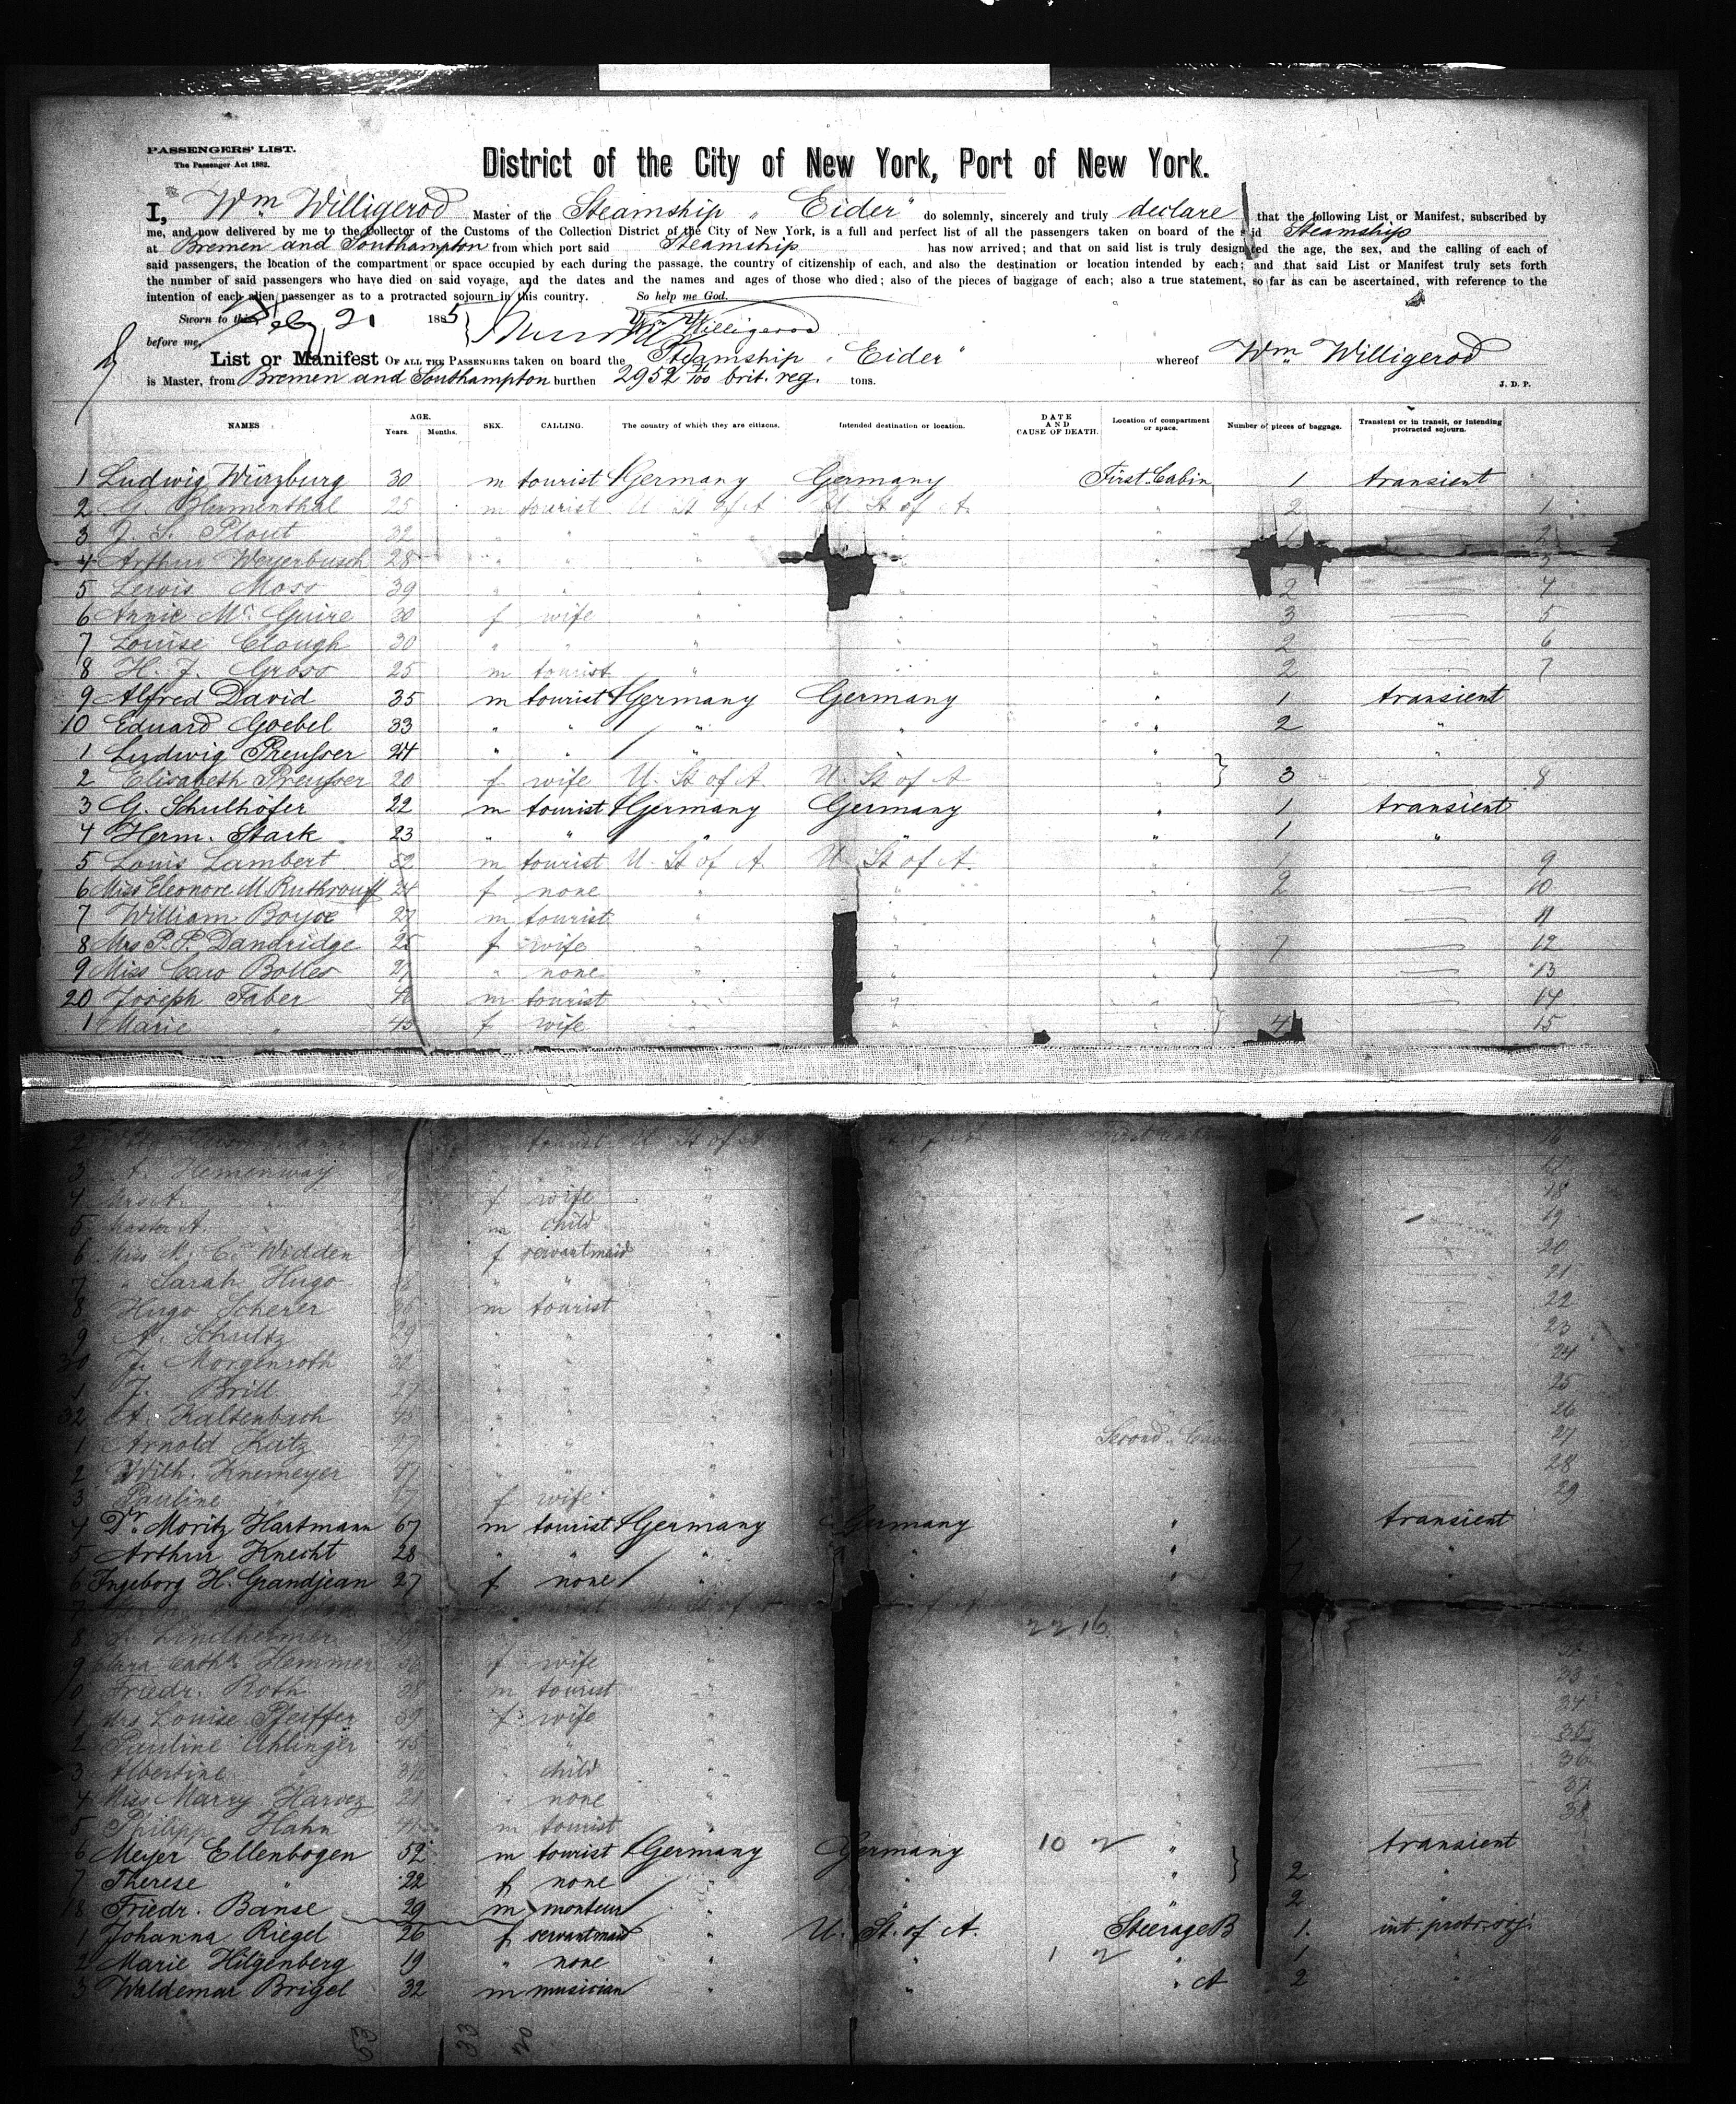 PASSENGERS' LIST.
The Passenger Act 1882.
District of the City of New York, Port of New York.
I, Wm Willigerod Master of the Steamship " Eider" do solemnly, sincerely and truly declare that the following List or Manifest, subscribed by
me, and now delivered by me to the Collector of the Customs of the Collection District of the City of New York, is a full and perfect list of all the passengers taken on board of the said Steamship
at Bremen and Southampton from which port said Steamship has now arrived; and that on said list is truly designated the age, the sex, and the calling of each of
said passengers, the location of the compartment or space occupied by each during the passage, the country of citizenship of each, and also the destination or location intended by each; and that said List or Manifest truly sets forth
the number of said passengers who have died on said voyage, and the dates and the names and ages of those who died; also of the pieces of baggage of each; also a true statement, so far as can be ascertained, with reference to the
intention of each alien passenger as to a protracted sojourn in this country. So help me God.
Sworn to this Feby 21 1885 Wm Willigerod
before me,
List or Manifest OF ALL THE PASSENGERS taken on board the Steamship " Eider" whereof Wm Willigerod
is Master, from Bremen and Southampton burthen 2952 brit. reg. tons. J. D. P.
NAMES AGE. Years. Months. SEX. CALLING. The country of which they are citizens. Intended destination or location. DATE AND CAUSE OF DEATH. Location of compartment or space. Number of pieces of baggage. Transient or in transit, or intending protracted sojourn.
1 Ludwig Würzburg 30 m tourist Germany Germany First Cabin 1 transient
2 G. Blumenthal 25 m tourist U. St of A U. St of A. " 2 1
3 J. S. Plout 32 " " " " 1 2
4 Arthur Weyerbusch 28 " " " " 3
5 Lewis Moss 39 " " " " " 2 4
6 Annie Mc Guire 30 f wife " " 3 5
7 Louise Clough 30 " " " " " 2 6
8 H. J. Gross 25 m tourist " " " 2 7
9 Alfred David 35 m tourist Germany Germany " 1 transient
10 Eduard Goebel 33 " " " " " 2 "
1 Ludwig Preusser 24 " " " " " "
2 Elisabeth Preusser 20 f wife U. St of A U. St of A " 3 8
3 G. Schulhöfer 22 m tourist Germany Germany " 1 transient
4 Herm. Stark 23 " " " " " 1 "
5 Louis Lambert 52 m tourist U. St of A U. St of A. " 1 9
6 Miss Eleonore M Ruthrouff 24 f none " " " 2 10
7 William Boyce 27 m tourist " " " 11
8 Mrs P. P. Dandridge 25 f wife " " " 7 12
9 Miss Caro Bolles 21 " none " " " 13
20 Joseph Faber m tourist " " " 14
1 Marie " 45 f wife " " " 4 15
2 tourist U. St of A First Cabin 16
3 A. Hemenway " " "
4 Mrs A. " f wife " 18
5 Master A. " m child " 19
6 Miss M. C. Widden f servantmaid " 20
7 " Sarah Hugo " " " 21
8 Hugo Scherer m tourist " 22
9 A. Schultz 29 " " " 23
30 J. Morgenroth 32 " " " 24
1 J. Brill 27 " " " 25
32 A. Kaltenbach 45 " " " 26
1 Arnold Katz " " " Second Cabin 27
2 Wilh. Knemeyer 47 " " " 28
3 Pauline " f wife " 29
4 Dr. Moritz Hartmann 67 m tourist Germany Germany " transient
5 Arthur Knecht 28 " " " " " 1 "
6 Ingeborg H. Grandjean 27 f none " " " "
7
8 S. Lindheimer 2216
9 Clara Cathe Hemmer f wife "
10 Friedr. Roth 38 m tourist " 33
1 Mrs Louise Pfeiffer 39 f wife " 34
2 Pauline Uhlinger 45 " " " 35
3 Albertine " " child " 36
4 Miss Marry Harvez 21 " none " 37
5 Philipp Hahn m tourist " 38
6 Meyer Ellenbogen 52 m tourist Germany Germany 10 2 " transient
7 Therese " 22 f none " " " 2 "
18 Friedr. Banse 29 m monteur " " " 2 "
1 Johanna Riegel 26 f servantmaid " U. St. of A. Steerage B 1.
2 Marie Hilgenberg 19 " none " " 1 2 " 1 "
3 Waldemar Brigel 32 m musician " " " A 2 "
53 33 20